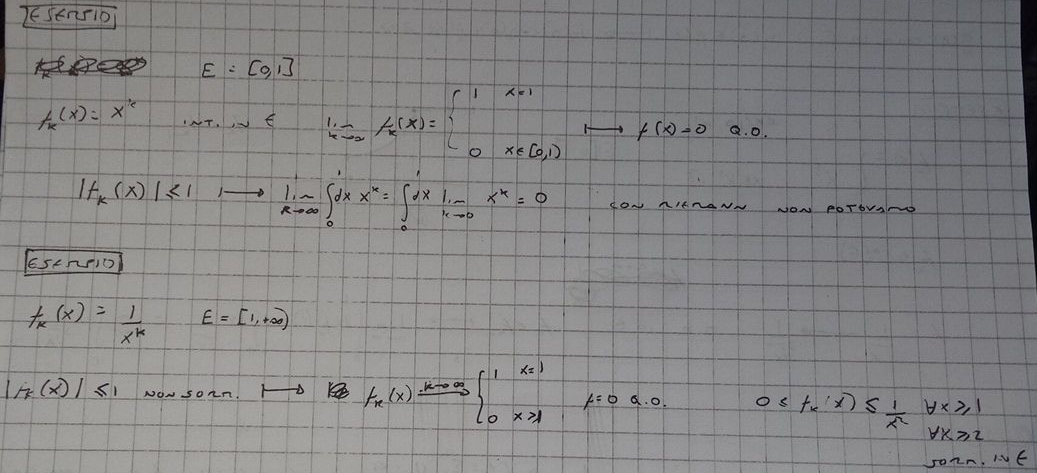 ESEMPIO
E = [0,1]
f_k(x) = x^k INT. IN E lim_{k→∞} f_k(x) = { 1 x=1 ; 0 x∈[0,1) ↦ f(x)=0 Q.O.
|f_k(x)| ≤ 1 ↦ lim_{k→∞} ∫_0^1 dx x^k = ∫_0^1 dx lim_{k→0} x^k = 0 CON RIEMANN NON POTEVAMO
ESEMPIO
f_k(x) = 1/x^k E = [1,+∞)
|f_k(x)| ≤ 1 NON SOMM. ↦ f_k(x) →^{k→∞} { 1 x=1 ; 0 x>1 f=0 Q.O. 0 ≤ f_k(x) ≤ 1/x² ∀x≥1
∀x≥2
SOMM. IN E